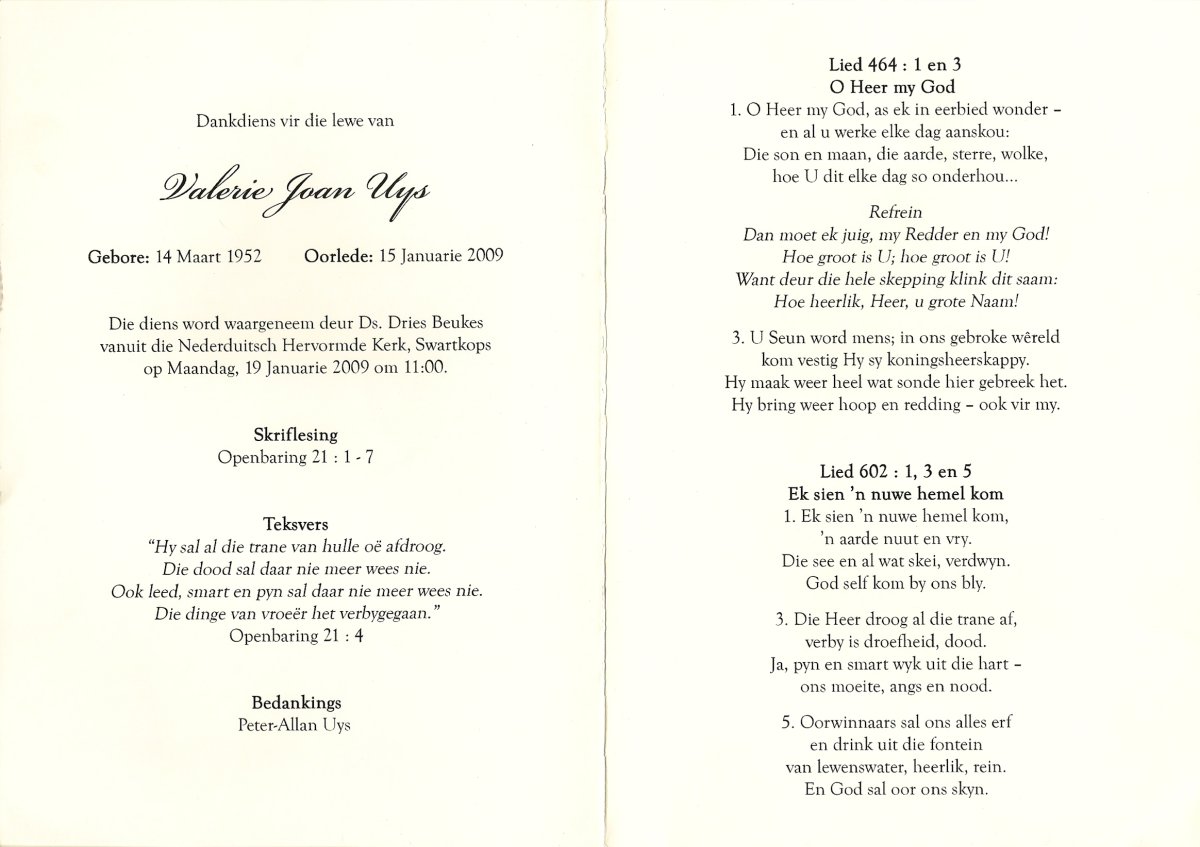 Dankdiens vir die lewe van
Valerie Joan Uys
Gebore: 14 Maart 1952 Oorlede: 15 Januarie 2009
Die diens word waargeneem deur Ds. Dries Beukes
vanuit die Nederduitsch Hervormde Kerk, Swartkops
op Maandag, 19 Januarie 2009 om 11:00.
Skriflesing
Openbaring 21 : 1 - 7
Teksvers
“Hy sal al die trane van hulle oë afdroog.
Die dood sal daar nie meer wees nie.
Ook leed, smart en pyn sal daar nie meer wees nie.
Die dinge van vroeër het verbygegaan.”
Openbaring 21 : 4
Bedankings
Peter-Allan Uys
Lied 464 : 1 en 3
O Heer my God
1. O Heer my God, as ek in eerbied wonder –
en al u werke elke dag aanskou:
Die son en maan, die aarde, sterre, wolke,
hoe U dit elke dag so onderhou...
Refrein
Dan moet ek juig, my Redder en my God!
Hoe groot is U; hoe groot is U!
Want deur die hele skepping klink dit saam:
Hoe heerlik, Heer, u grote Naam!
3. U Seun word mens; in ons gebroke wêreld
kom vestig Hy sy koningsheerskappy.
Hy maak weer heel wat sonde hier gebreek het.
Hy bring weer hoop en redding – ook vir my.
Lied 602 : 1, 3 en 5
Ek sien ’n nuwe hemel kom
1. Ek sien ’n nuwe hemel kom,
’n aarde nuut en vry.
Die see en al wat skei, verdwyn.
God self kom by ons bly.
3. Die Heer droog al die trane af,
verby is droefheid, dood.
Ja, pyn en smart wyk uit die hart –
ons moeite, angs en nood.
5. Oorwinnaars sal ons alles erf
en drink uit die fontein
van lewenswater, heerlik, rein.
En God sal oor ons skyn.